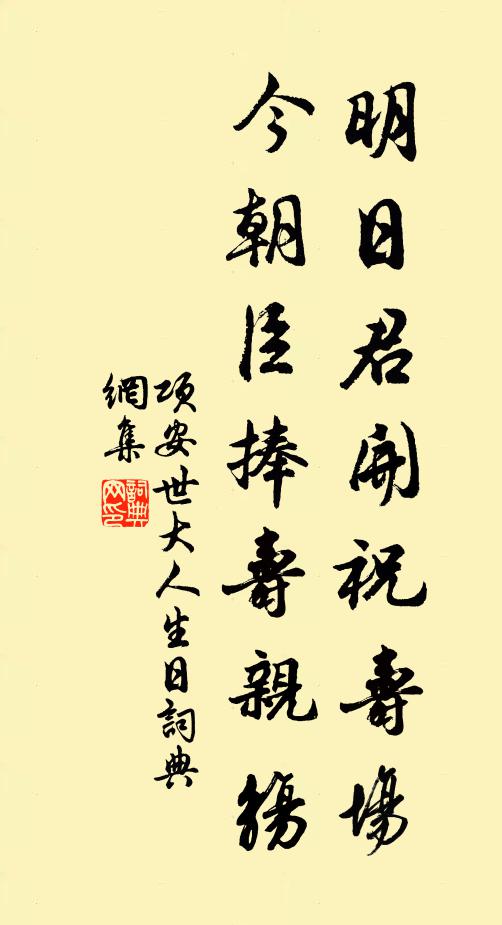 明日君開祝壽場
今朝臣捧壽親觴
項安世大人生日詞典
網集
詞典
网印